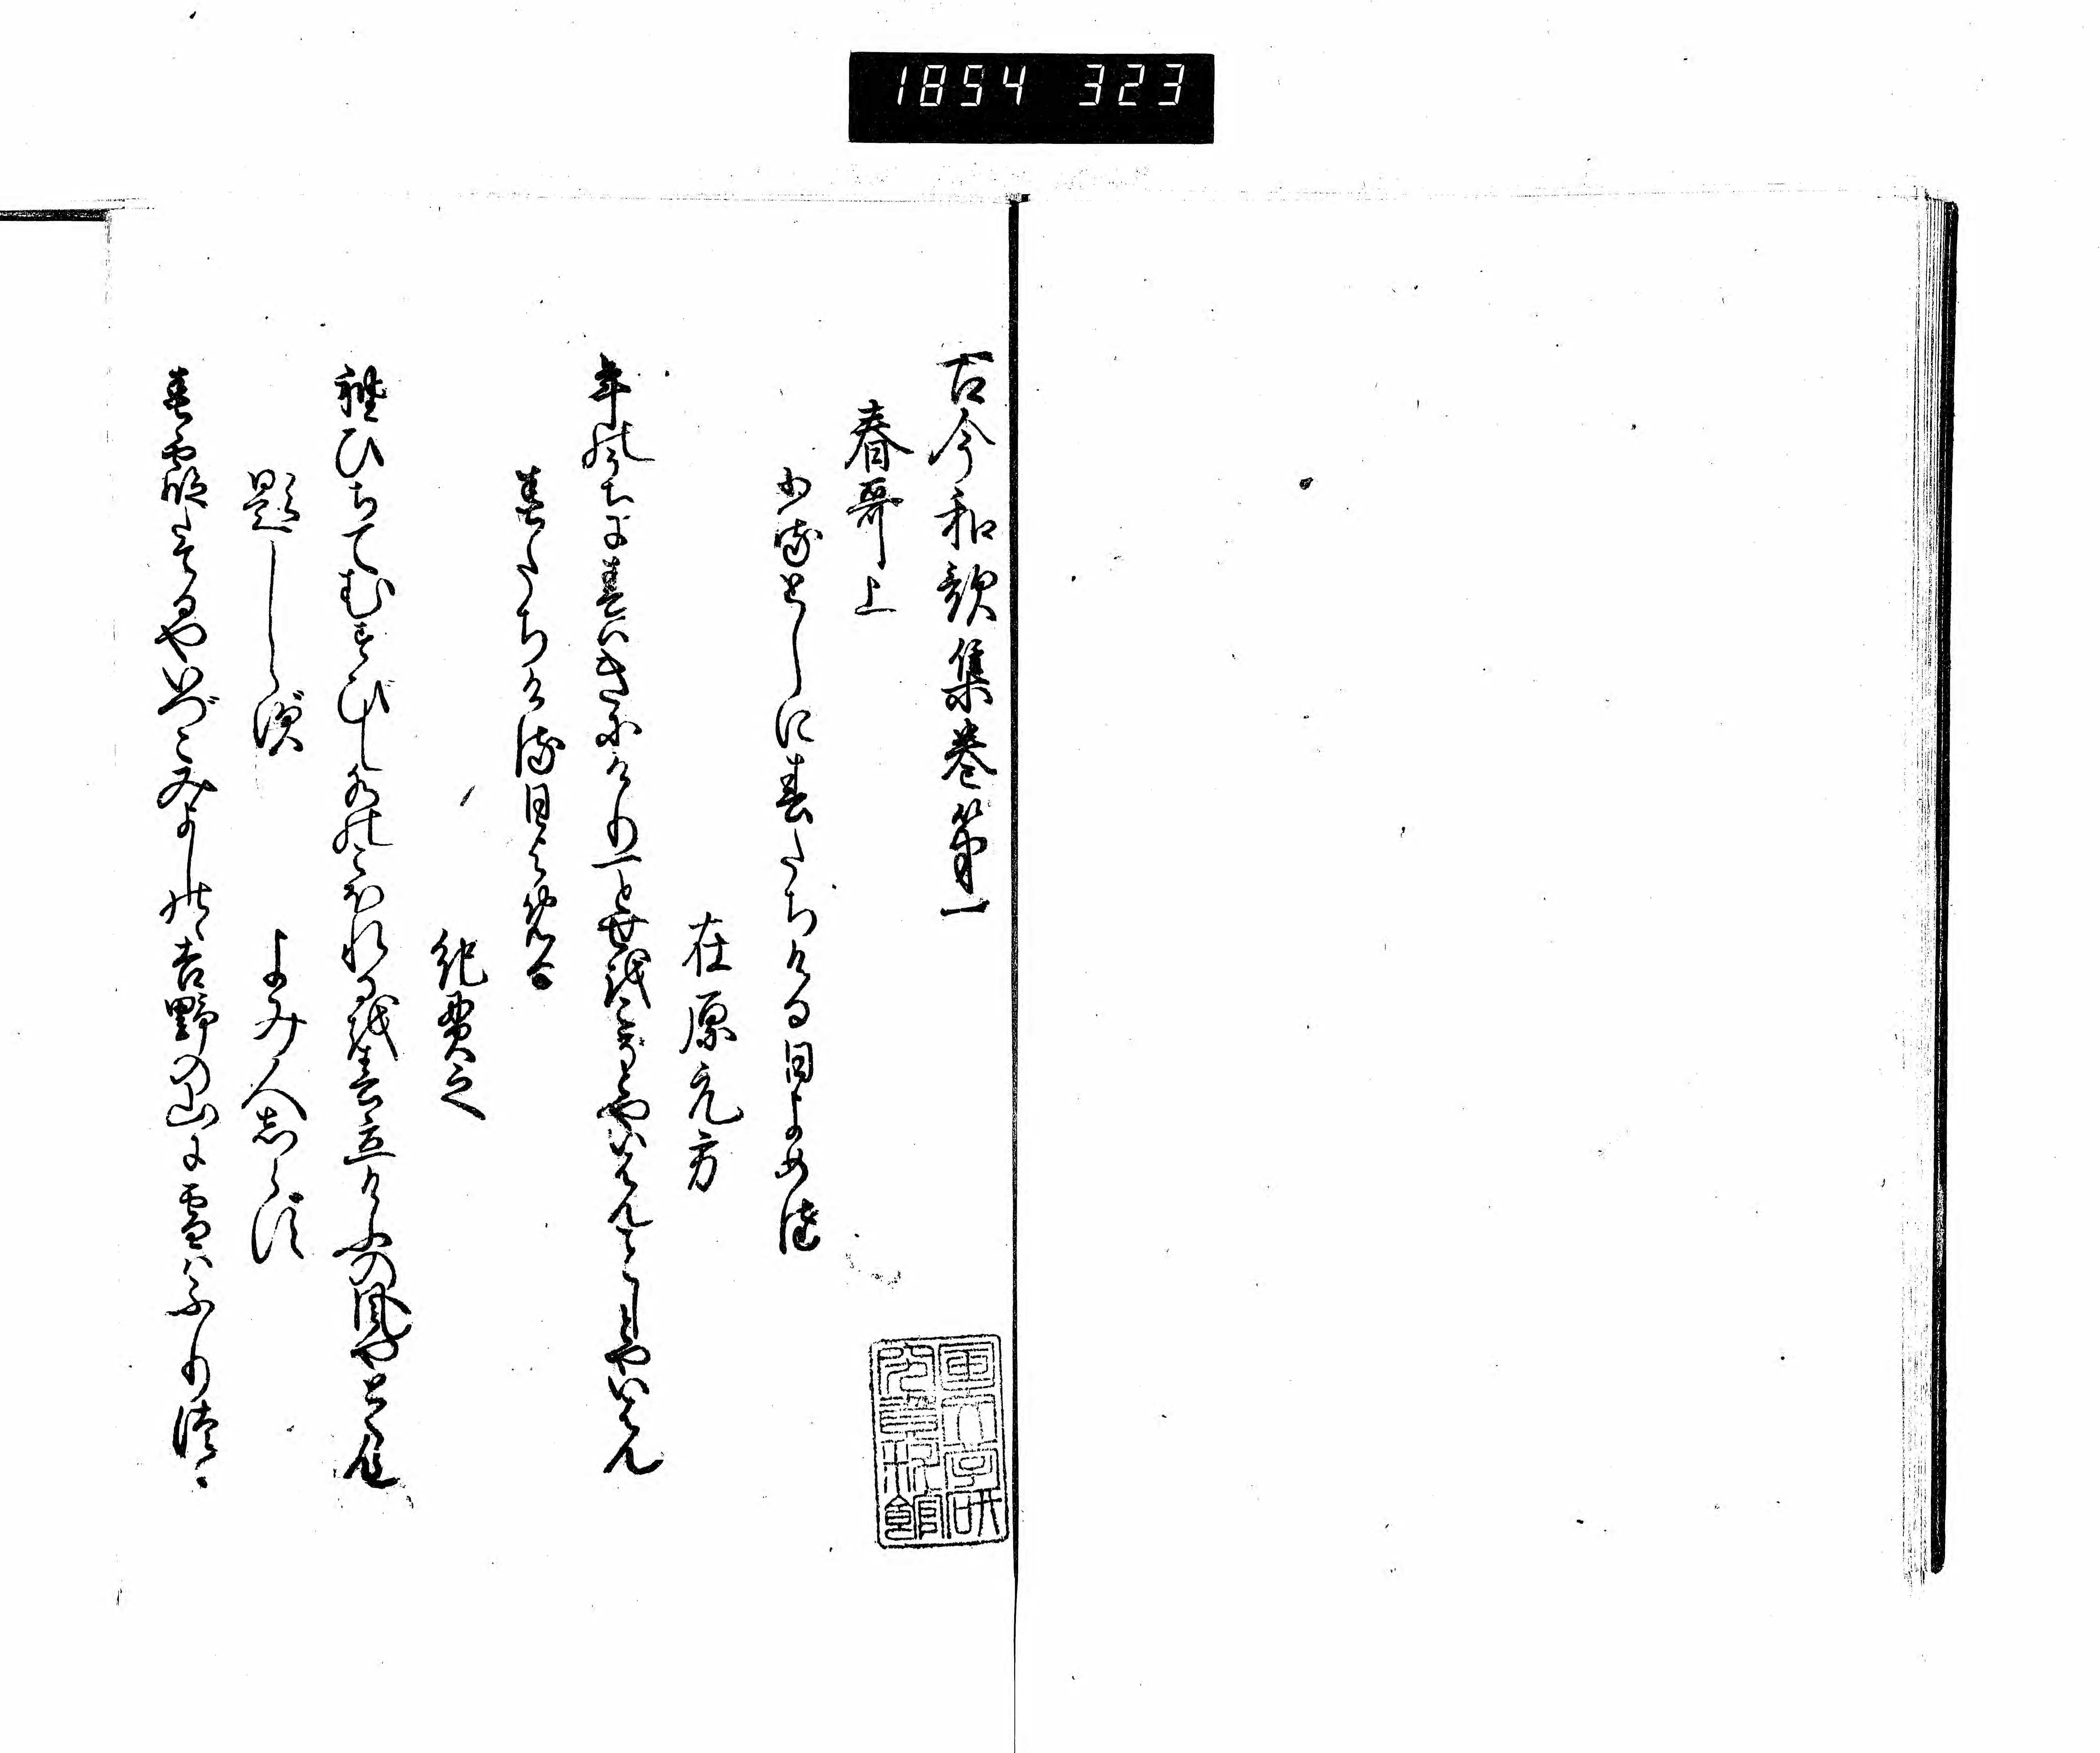 1854 323
古今和歌集巻第一
春哥上
ふるとしに春たちける日よめる
在原元方
年のうちに春はきにけり一とせをこそとやいはんことしとやいはん
春たちける日よめる
紀貫之
袖ひちてむすびし水のこほれるを春立けふの風やとくらん
題しらず
よみ人しらず
春霞たてるやいづこみよしのの吉野の山に雪はふりつゝ